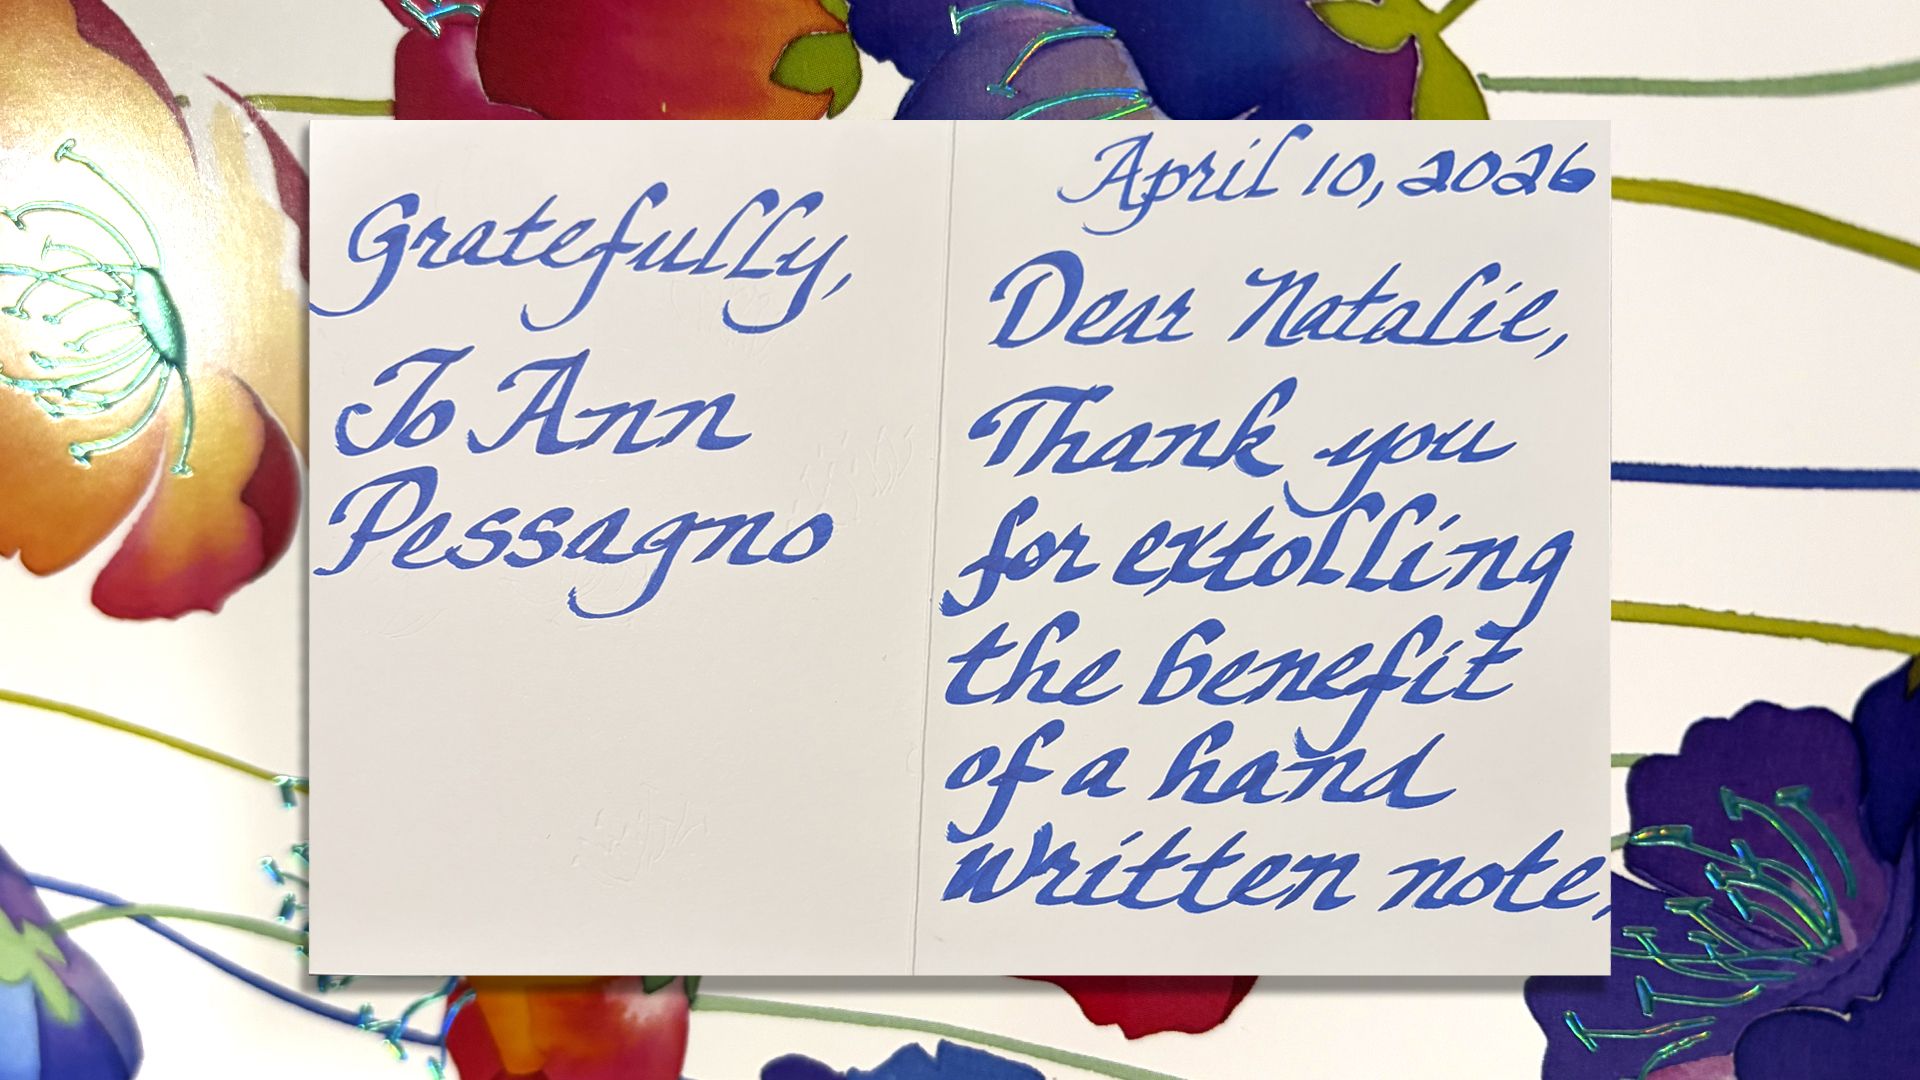 April 10, 2026
Dear Natalie,
Thank you
for extolling
the benefit
of a hand
written note,
Gratefully,
Jo Ann
Pessagno